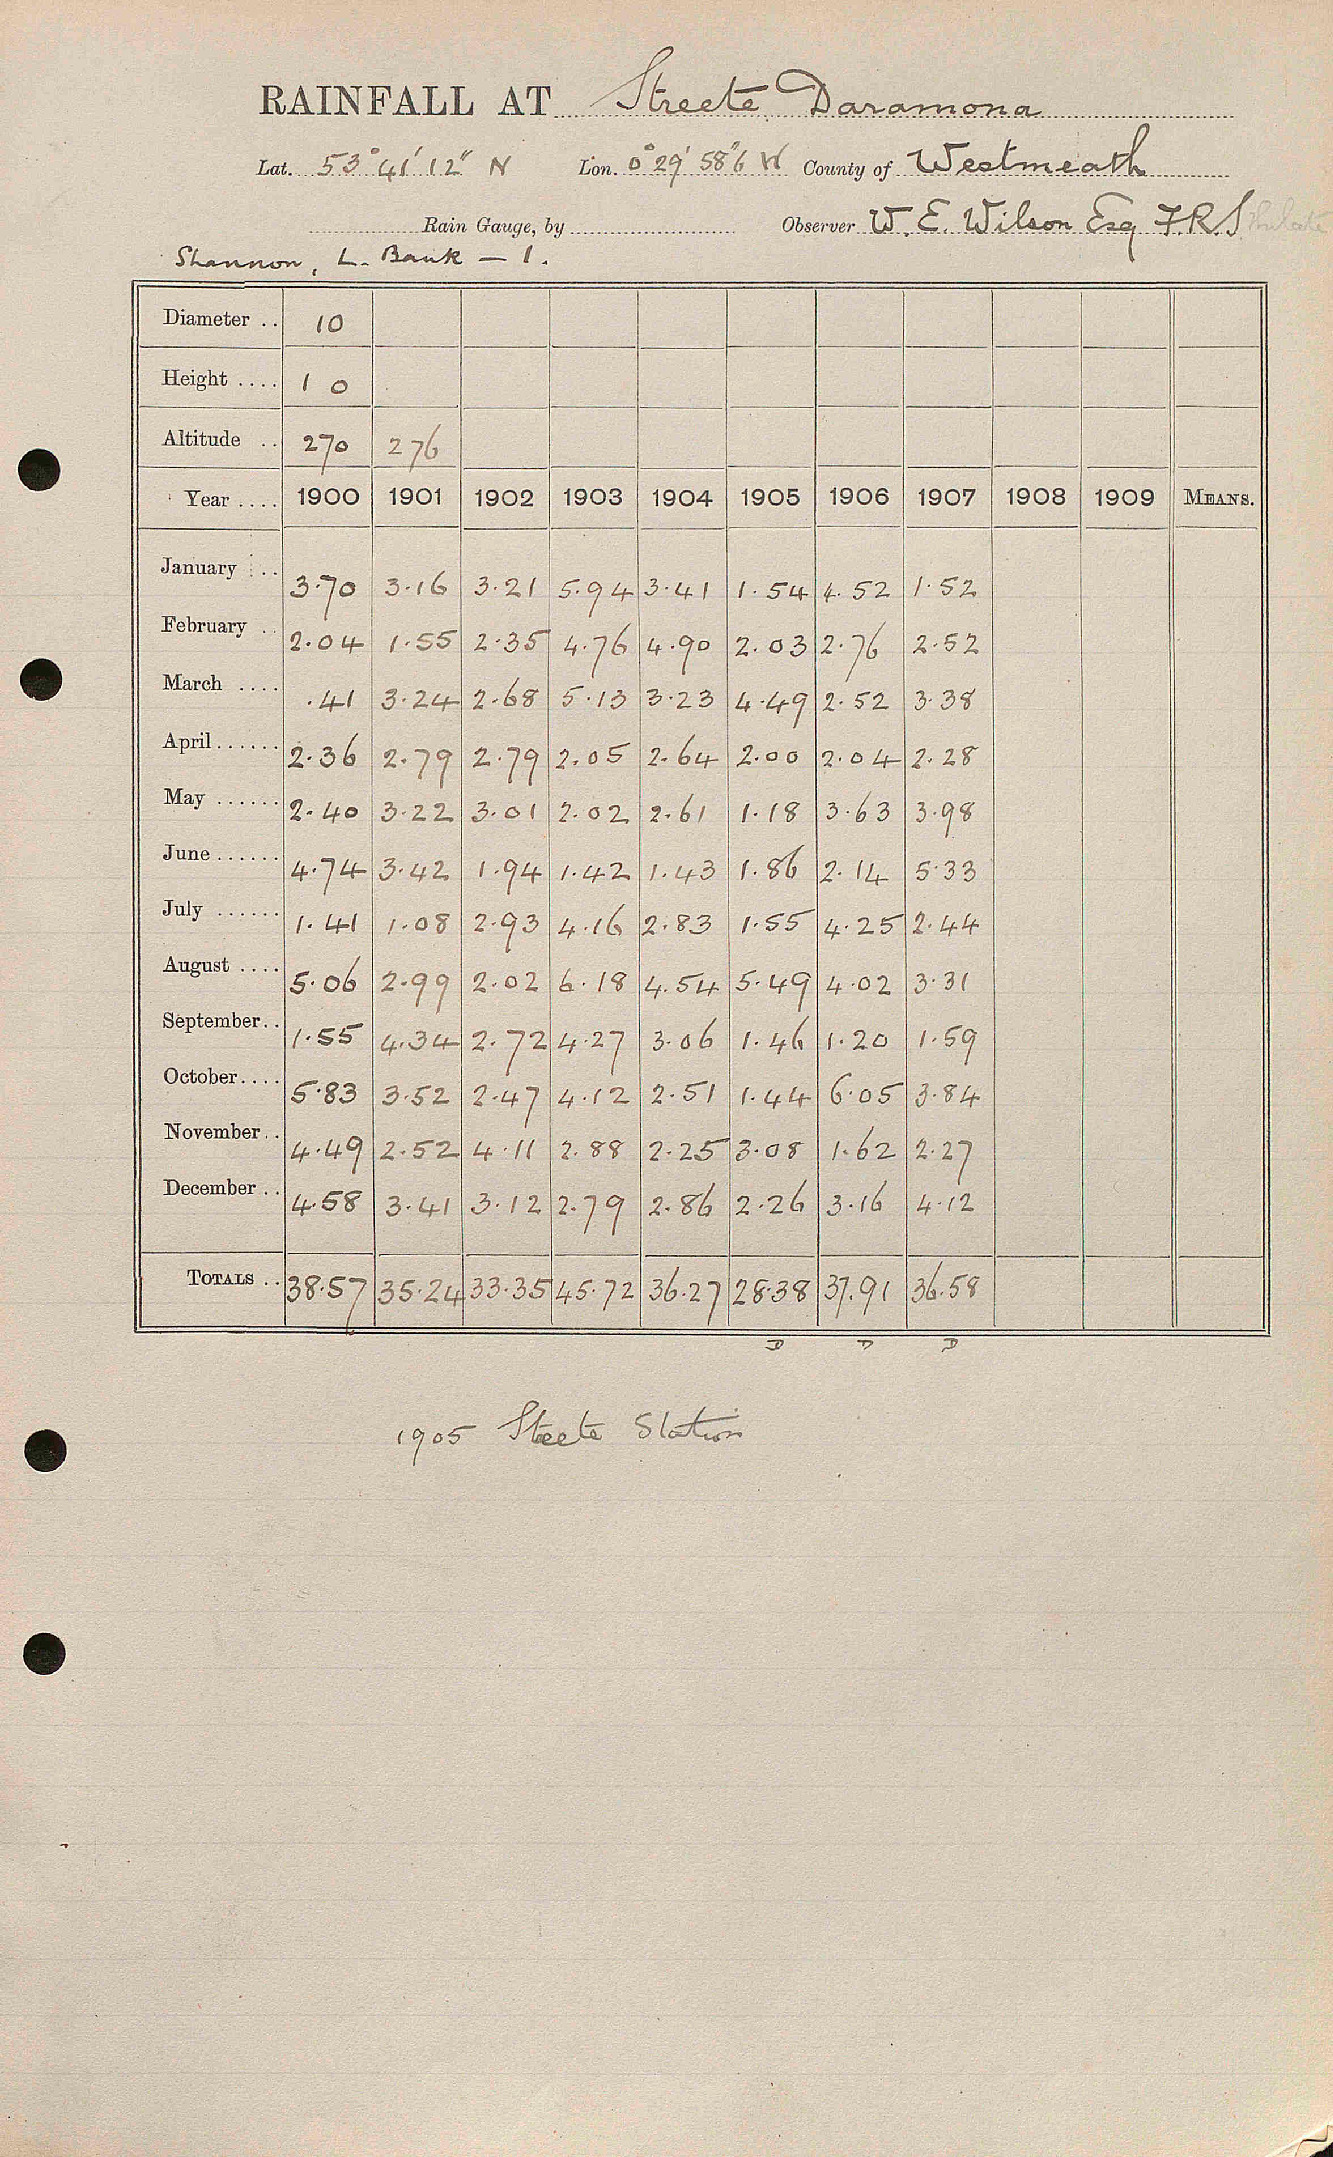 RAINFALL AT Streete, Daramona
Lat. 53° 41' 12" N Lon. 0° 29' 58"6 W County of Westmeath
Rain Gauge, by Observer W. E. Wilson Esq F.R.S.
Shannon, L. Bank — 1.
Diameter .. 10
Height .... 1 0
Altitude .. 270 276
Year .... 1900 1901 1902 1903 1904 1905 1906 1907 1908 1909 MEANS.
January ... 3.70 3.16 3.21 5.94 3.41 1.54 4.52 1.52
February .. 2.04 1.55 2.35 4.76 4.90 2.03 2.76 2.52
March .... .41 3.24 2.68 5.13 3.23 4.49 2.52 3.38
April ...... 2.36 2.79 2.79 2.05 2.64 2.00 2.04 2.28
May ...... 2.40 3.22 3.01 2.02 2.61 1.18 3.63 3.98
June ...... 4.74 3.42 1.94 1.42 1.43 1.86 2.14 5.33
July ...... 1.41 1.08 2.93 4.16 2.83 1.55 4.25 2.44
August .... 5.06 2.99 2.02 6.18 4.54 5.49 4.02 3.31
September.. 1.55 4.34 2.72 4.27 3.06 1.46 1.20 1.59
October.... 5.83 3.52 2.47 4.12 2.51 1.44 6.05 3.84
November.. 4.49 2.52 4.11 2.88 2.25 3.08 1.62 2.27
December .. 4.58 3.41 3.12 2.79 2.86 2.26 3.16 4.12
TOTALS .. 38.57 35.24 33.35 45.72 36.27 28.38 37.91 36.58
D D D
1905 Steete Station